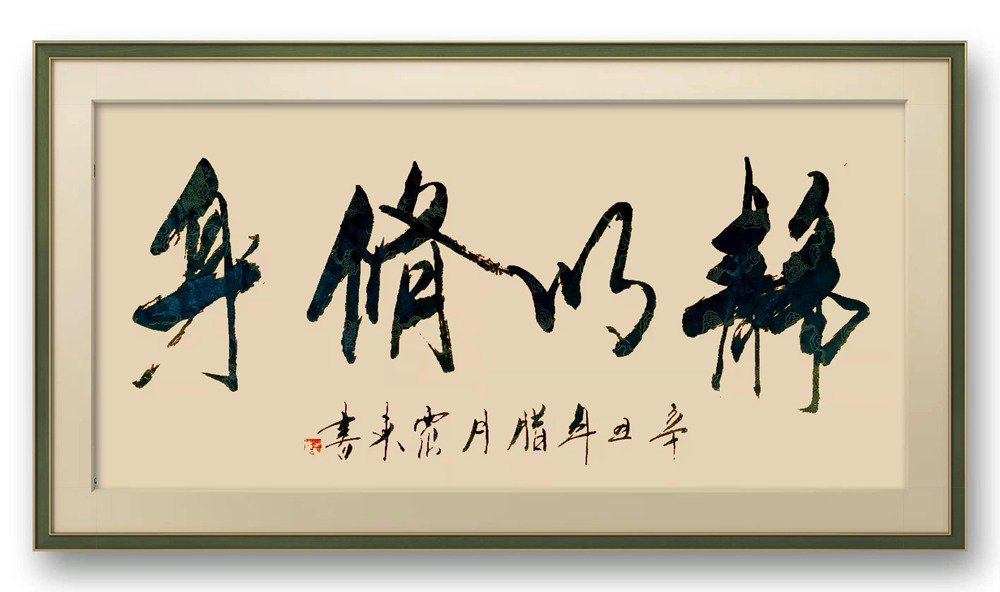 静以修身
辛丑年腊月霜来书